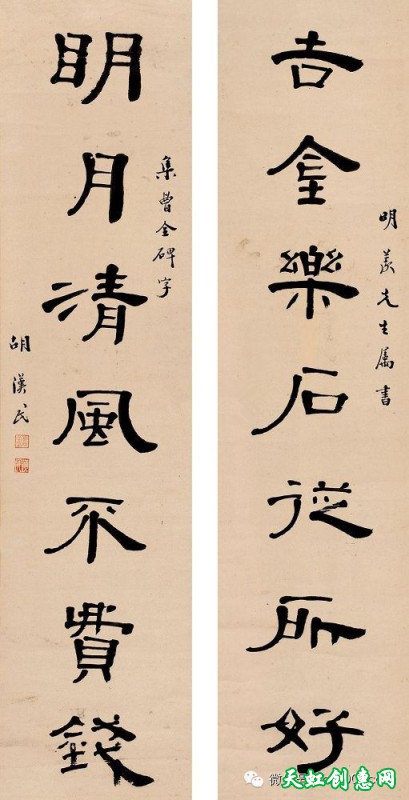 明先生屬書
吉金樂石從所好
集曹全碑字
明月清風不費錢
胡漢民
天虹创意网